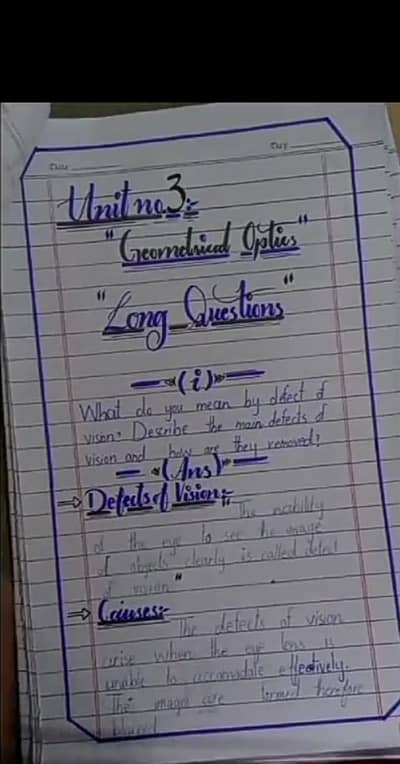 Date
Day
Unit no.3:-
"Geometrical Optics"
"Long Questions"
(i)
What do you mean by defect of
vison? Describe the main defects of
vision and how are they removed?
(Ans)
⇒ Defects of Vision:- "The inability
of the eye to see the image
of objects clearly is called defect
of vision"
⇒ Causes:-
The defects of vision
arise when the eye lens is
unable to accomodate effectively.
The images are formed therefore
blurred.